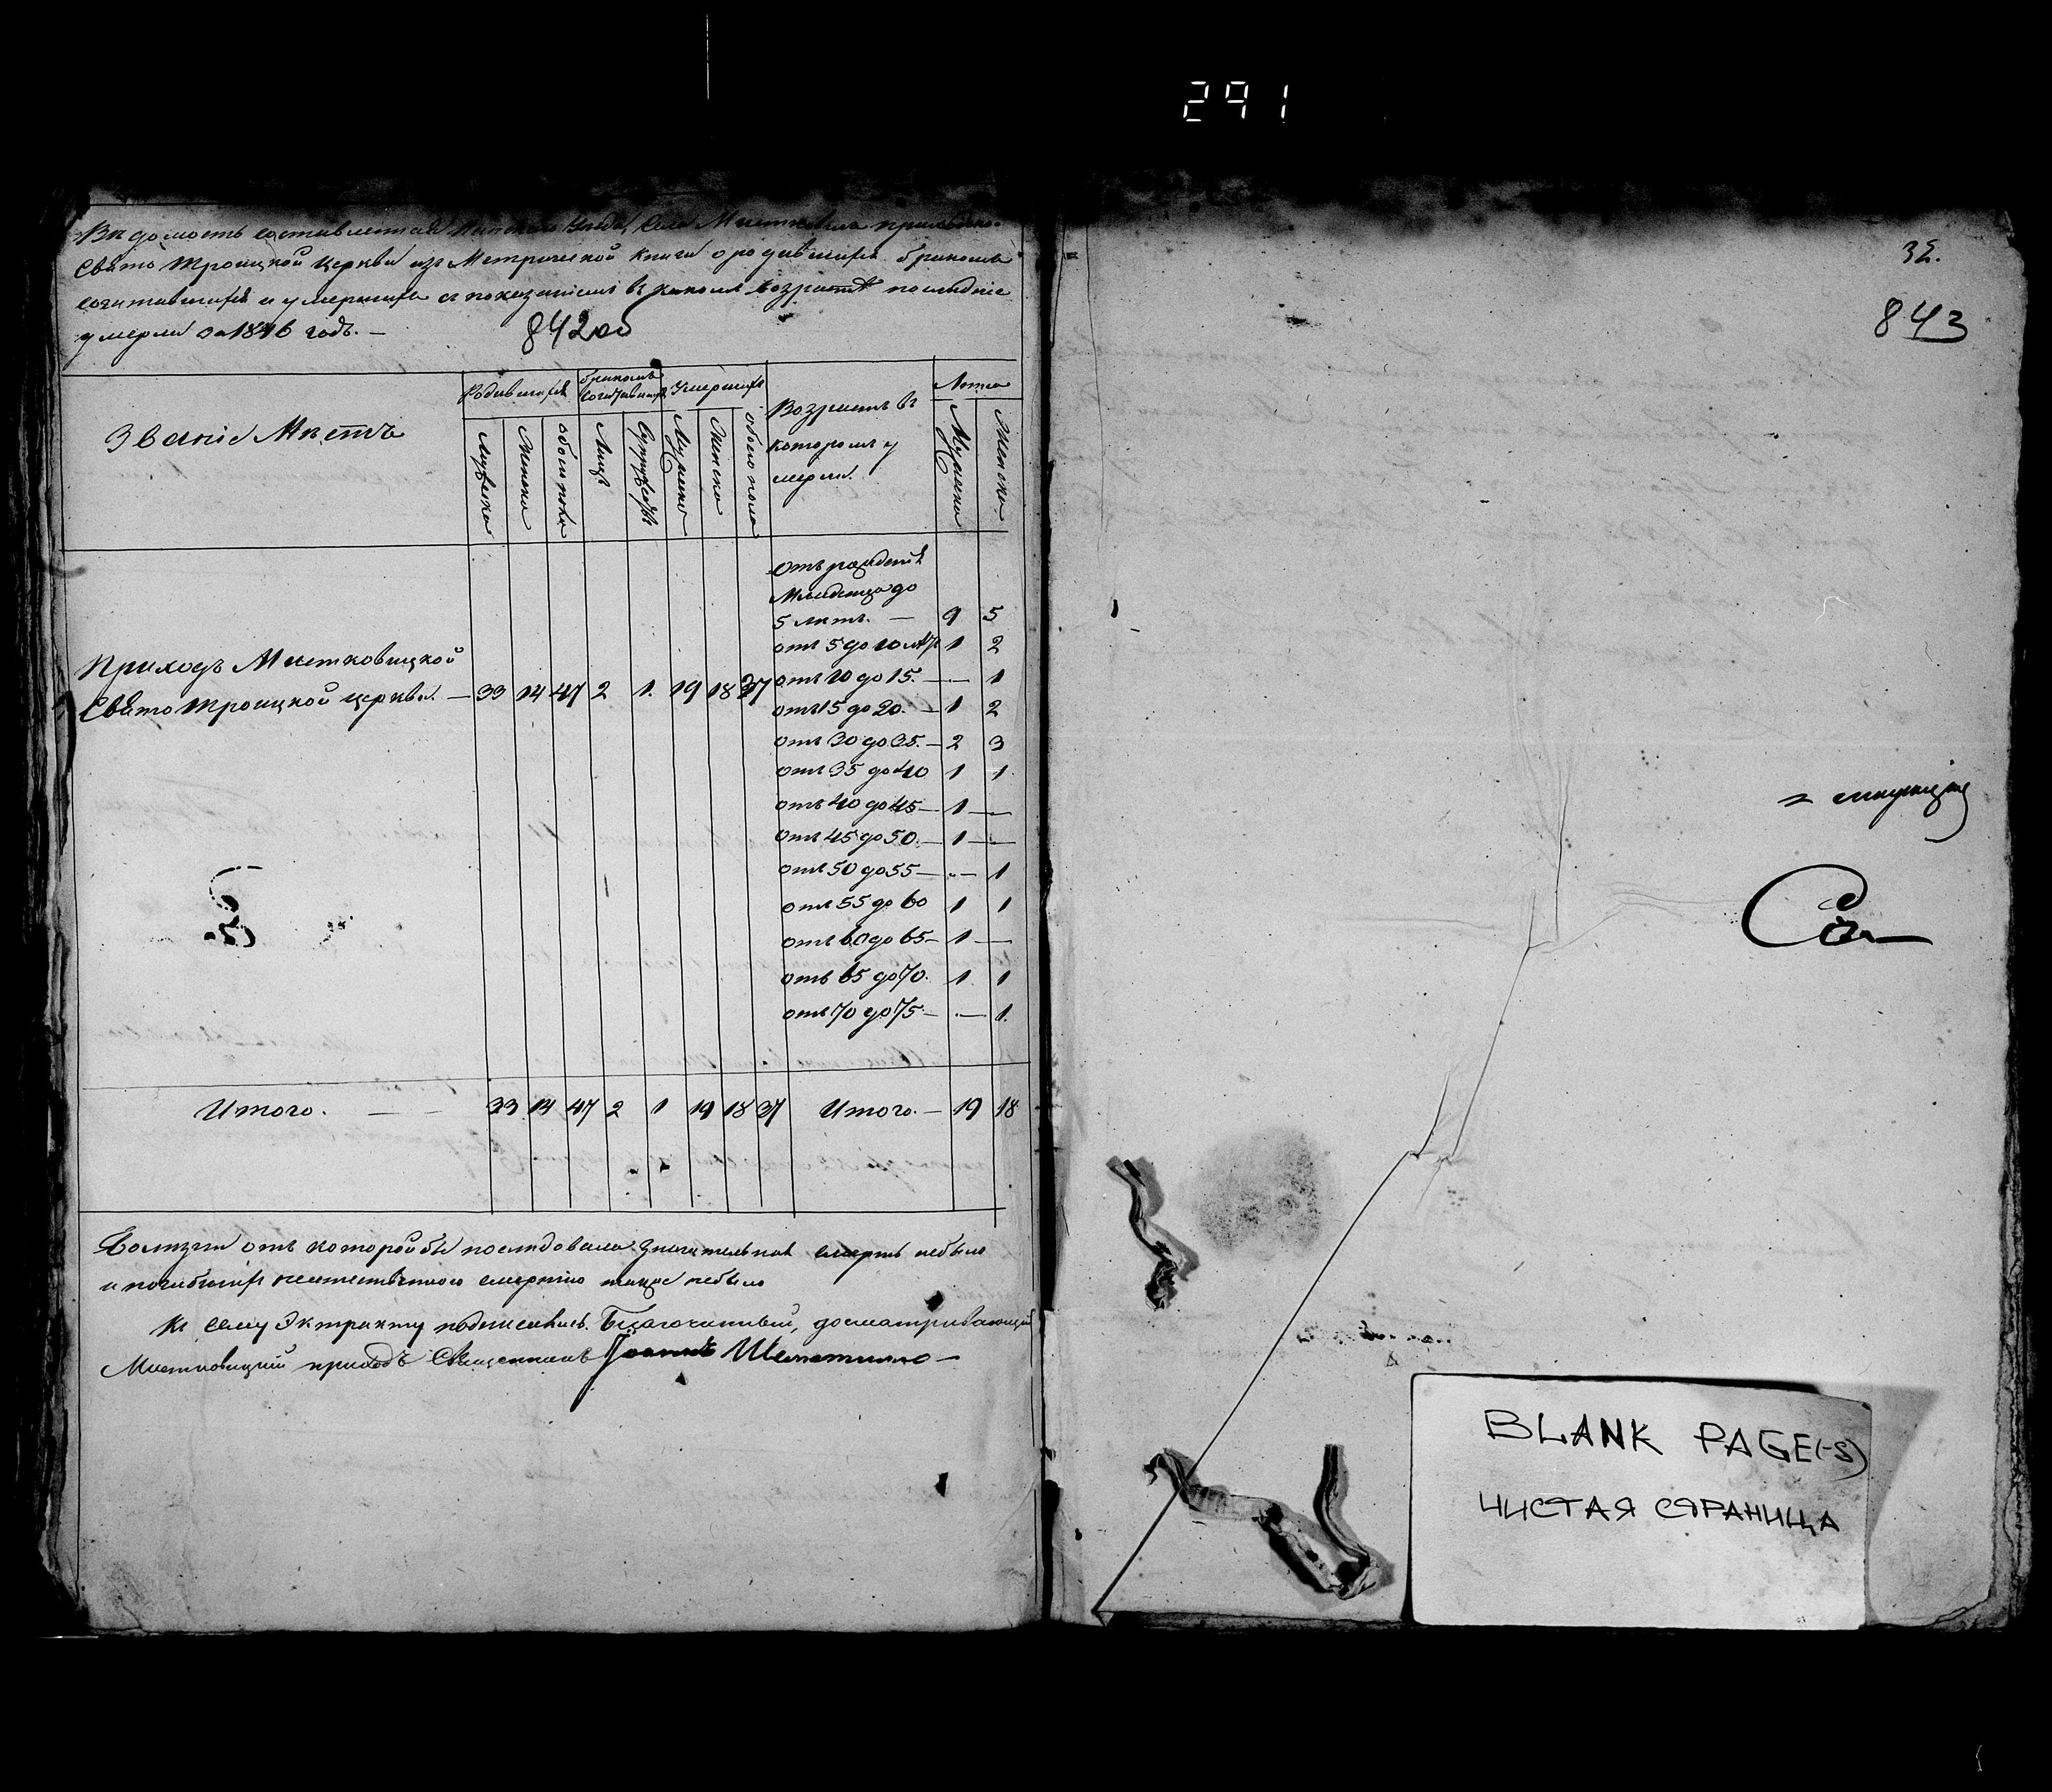 291
Вѣдомость составленная Пинскаго Уѣзда, Села Мистковичъ приходско-
Свято Троицкой Церкви изъ Метрической Книги о родившихся бракомъ
сочитавшихся и умершихъ съ показаніемъ въ какомъ возрастѣ последніе
умерли за 1846 годъ. —
842об
Званіе Мѣстъ
Родившихся
бракомъ сочитавшихся
Умершихъ
Возрастъ въ
которомъ у
мерли.
Лѣта
Мужеска
Женска
обоего пола
Лицъ
Супружествъ
Мужеска
Женска
обоего пола
Мужеска
Женска
Приходъ Мистковицкой
Свято Троицкой церкви. — 33 14 47 2 1. 19 18 37
отъ рожденія
Младенца до
5 лѣтъ. — 9 5
отъ 5 до 10 лѣтъ 1 2
отъ 10 до 15. — — 1
отъ 15 до 20. — 1 2
отъ 30 до 35. — 2 3
отъ 35 до 40 1 1.
отъ 40 до 45 — 1 —
отъ 45 до 50. — 1 —
отъ 50 до 55 — — 1
отъ 55 до 60 1 1
отъ 60 до 65 — 1 —
отъ 65 до 70. 1 1
отъ 70 до 75 — — 1.
Итого. — — 33 14 47 2 1 19 18 37 Итого. — 19 18
Болѣзни отъ которой бы последовала значительная смерть небыло
и погибшихъ неестественною смертію также небыло
Къ сему Экстракту подписались. Благочинный, досматривающій
Мистковицкій приходъ Священникъ Іоаннъ
32.
843
BLANK PAGE(-S)
ЧИСТАЯ СТРАНИЦА